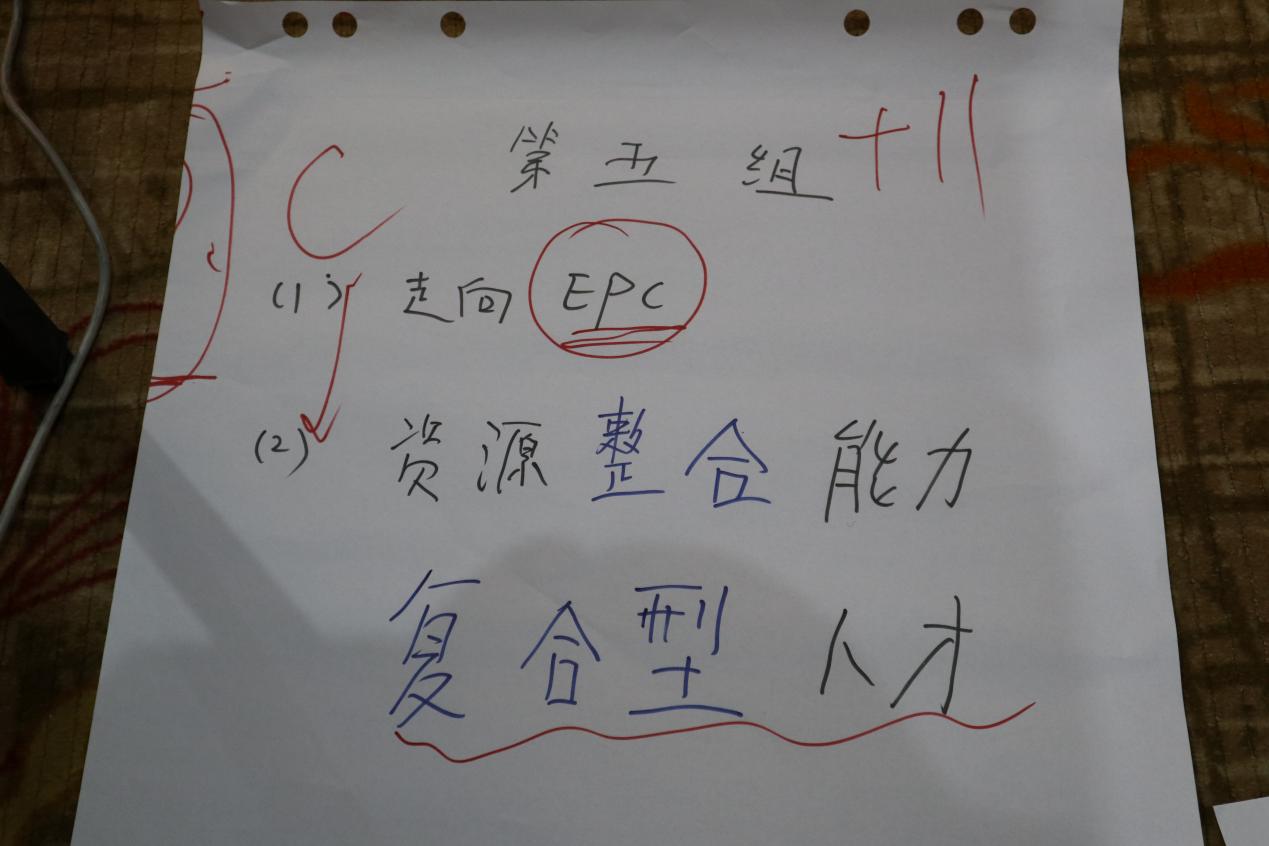 第五组 +11
C
(1) 走向 EPC
(2) 资源整合能力
复合型人才